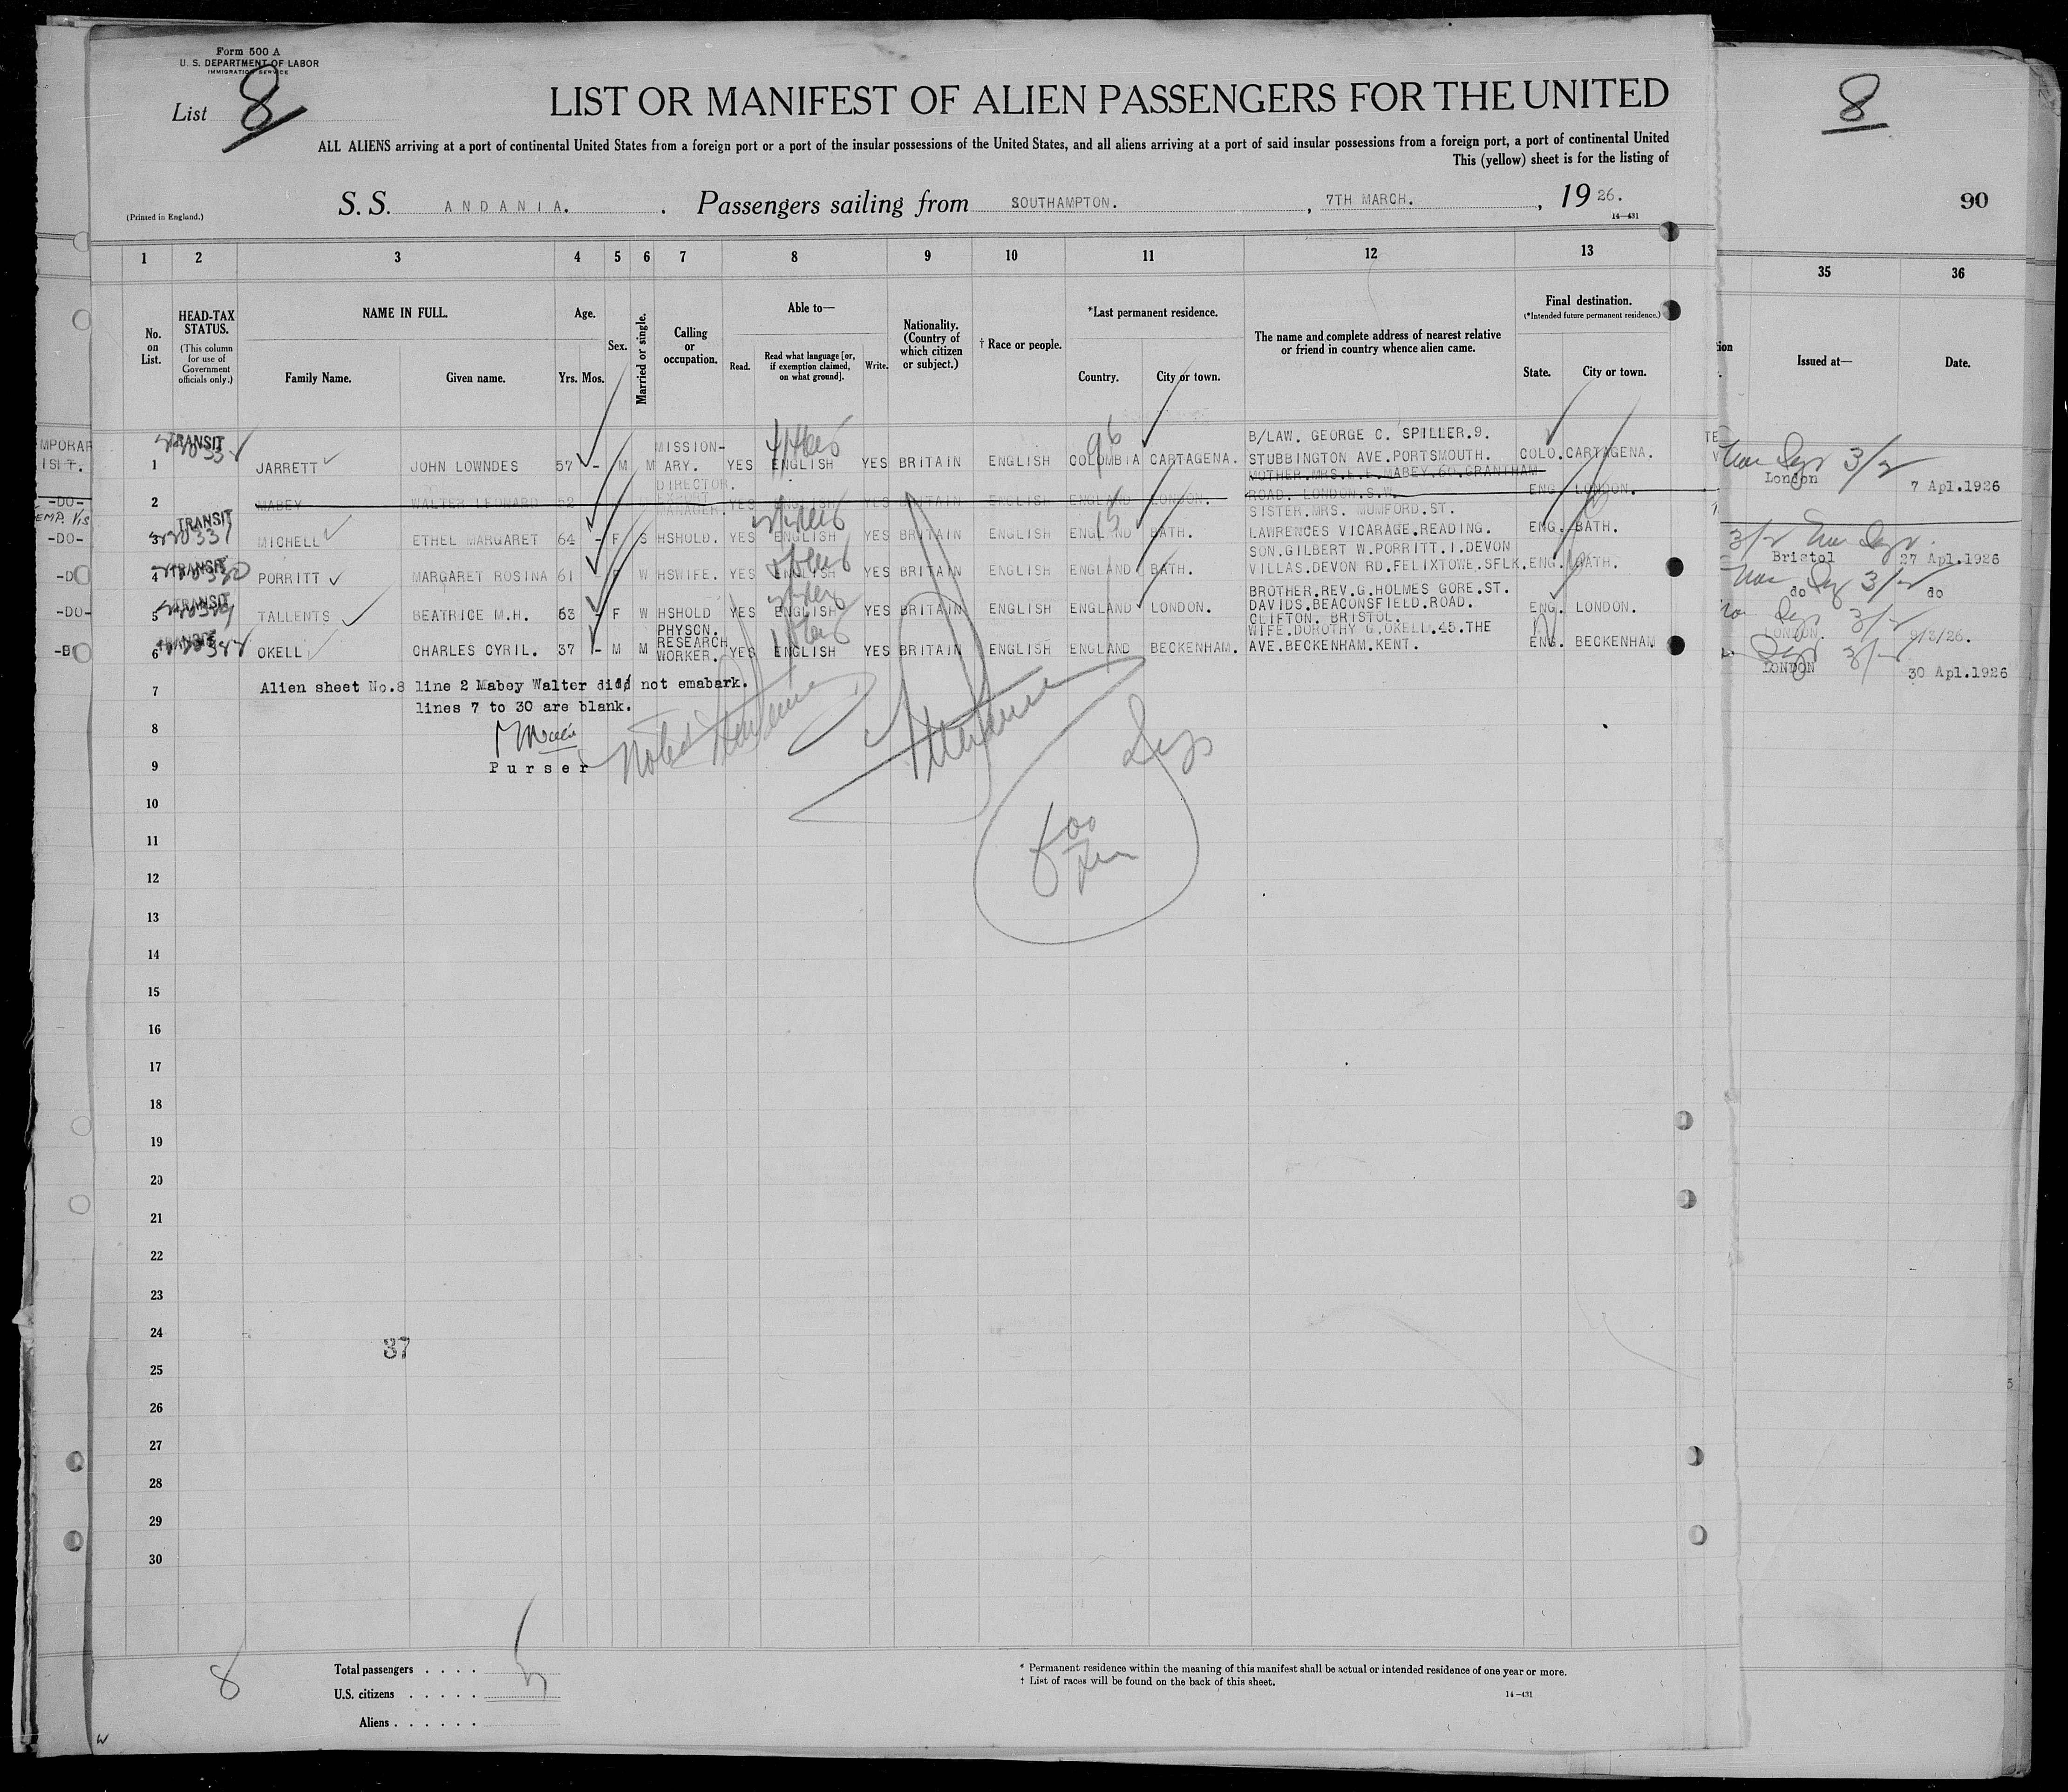 Form 500 A
U. S. DEPARTMENT OF LABOR
IMMIGRATION SERVICE
List 8
LIST OR MANIFEST OF ALIEN PASSENGERS FOR THE UNITED
ALL ALIENS arriving at a port of continental United States from a foreign port or a port of the insular possessions of the United States, and all aliens arriving at a port of said insular possessions from a foreign port, a port of continental United
This (yellow) sheet is for the listing of
(Printed in England.)
S. S. ANDANIA. . Passengers sailing from SOUTHAMPTON. , 7TH MARCH. , 19 26.
14—431
8
90
1 2 3 4 5 6 7 8 9 10 11 12 13 35 36
No. on List.
HEAD-TAX STATUS.
(This column for use of Government officials only.)
NAME IN FULL.
Family Name. Given name.
Age.
Yrs. Mos.
Sex.
Married or single.
Calling or occupation.
Able to—
Read. Read what language [or, if exemption claimed, on what ground]. Write.
Nationality. (Country of which citizen or subject.)
† Race or people.
*Last permanent residence.
Country. City or town.
The name and complete address of nearest relative or friend in country whence alien came.
Final destination.
(*Intended future permanent residence.)
State. City or town.
Issued at— Date.
TRANSIT
1 JARRETT JOHN LOWNDES 57 - M M MISSION-ARY. YES ENGLISH YES BRITAIN ENGLISH COLOMBIA CARTAGENA. B/LAW. GEORGE C. SPILLER.9. STUBBINGTON AVE.PORTSMOUTH. COLO. CARTAGENA. London 7 Apl.1926
2 MABEY WALTER LEONARD 52 DIRECTOR. EXPORT MANAGER. YES ENGLISH YES BRITAIN ENGLISH ENGLAND LONDON. MOTHER.MRS.E.E.MABEY.60.GRANTHAM ROAD. LONDON.S.W. ENG. LONDON.
TRANSIT
3 MICHELL ETHEL MARGARET 64 - F S HSHOLD. YES ENGLISH YES BRITAIN ENGLISH ENGLAND BATH. SISTER.MRS. MUMFORD.ST. LAWRENCES VICARAGE.READING. ENG. BATH. Bristol 27 Apl.1926
TRANSIT
4 PORRITT MARGARET ROSINA 61 F W HSWIFE. YES ENGLISH YES BRITAIN ENGLISH ENGLAND BATH. SON.GILBERT W.PORRITT.I.DEVON VILLAS.DEVON RD.FELIXTOWE.SFLK. ENG. BATH. do do
TRANSIT
5 TALLENTS BEATRICE M.H. 63 - F W HSHOLD YES ENGLISH YES BRITAIN ENGLISH ENGLAND LONDON. BROTHER.REV.G.HOLMES GORE.ST. DAVIDS.BEACONSFIELD.ROAD. CLIFTON. BRISTOL. ENG. LONDON. LONDON. 9/3/26.
TRANSIT
6 OKELL CHARLES CYRIL. 37 - M M PHYSCN. RESEARCH WORKER. YES ENGLISH YES BRITAIN ENGLISH ENGLAND BECKENHAM. WIFE.DOROTHY G.OKELL.45.THE AVE.BECKENHAM.KENT. ENG. BECKENHAM LONDON 30 Apl.1926
7 Alien sheet No.8 line 2 Mabey Walter did not emabark.
lines 7 to 30 are blank.
8
9 Purser
10
11
12
13
14
15
16
17
18
19
20
21
22
23
24
37
25
26
27
28
29
30
8
Total passengers . . . . 5
U.S. citizens . . . . .
Aliens . . . . . .
* Permanent residence within the meaning of this manifest shall be actual or intended residence of one year or more.
† List of races will be found on the back of this sheet.
14—431